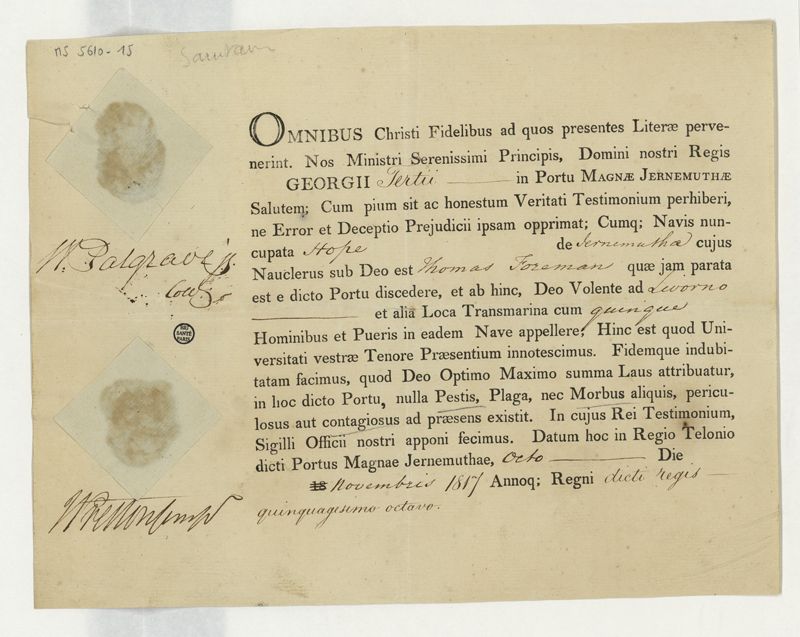 MS 5610-15
OMNIBUS Christi Fidelibus ad quos presentes Literæ perve-
nerint. Nos Ministri Serenissimi Principis, Domini nostri Regis
GEORGII Tertii in Portu MAGNÆ JERNEMUTHÆ
Salutem; Cum pium sit ac honestum Veritati Testimonium perhiberi,
ne Error et Deceptio Prejudicii ipsam opprimat; Cumq; Navis nun-
cupata Hope de Jernemutha cujus
Nauclerus sub Deo est Thomas Foreman quæ jam parata
est e dicto Portu discedere, et ab hinc, Deo Volente ad Livorno
et alia Loca Transmarina cum quinque
Hominibus et Pueris in eadem Nave appellere; Hinc est quod Uni-
versitati vestræ Tenore Præsentium innotescimus. Fidemque indubi-
tatam facimus, quod Deo Optimo Maximo summa Laus attribuatur,
in hoc dicto Portu, nulla Pestis, Plaga, nec Morbus aliquis, pericu-
losus aut contagiosus ad præsens existit. In cujus Rei Testimonium,
Sigilli Officii nostri apponi fecimus. Datum hoc in Regio Telonio
dicti Portus Magnae Jernemuthae, Octo Die
18 Novembris 1817 Annoq; Regni dicti regis
quinquagesimo octavo.
W. Palgrave Jr.
Coll
BIU
SANTÉ
PARIS